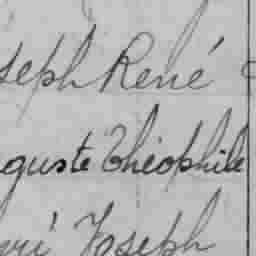 seph René
guste Théophile
nri Joseph